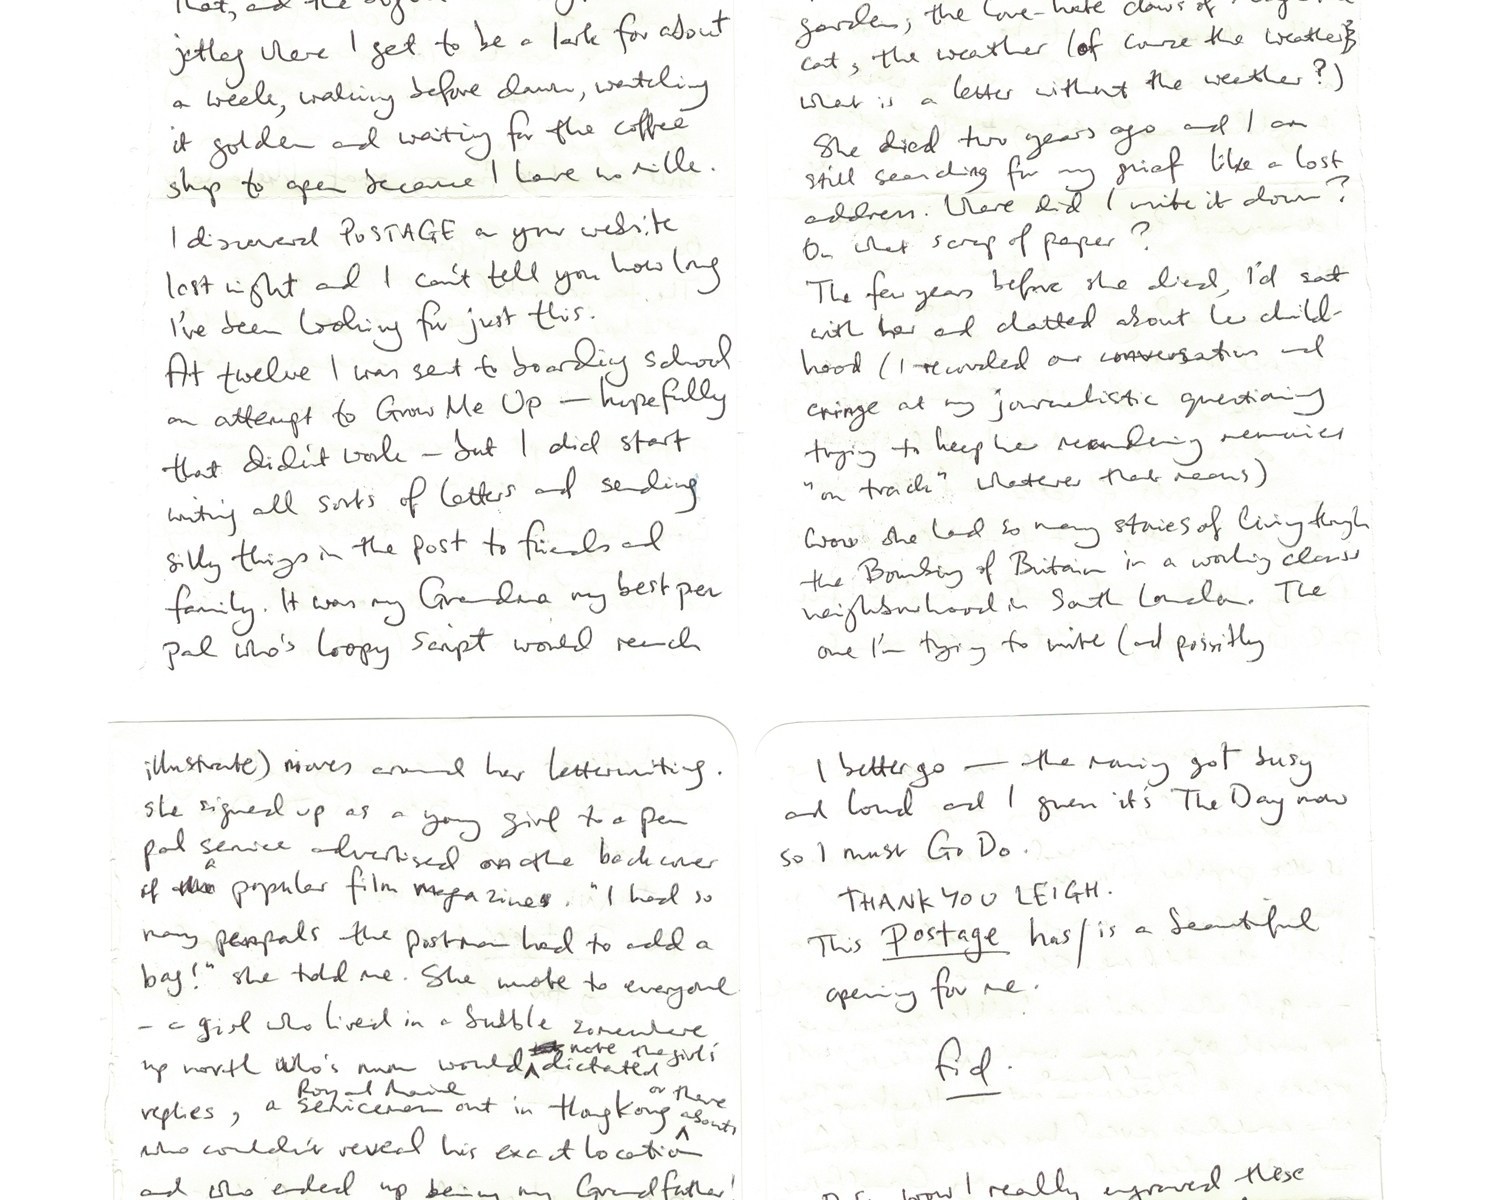 that, and the
jetlag where I get to be a lark for about
a week, waking before dawn, watching
it golden and waiting for the coffee
shop to open because I have no milk.
I discovered POSTAGE on your website
last night and I can't tell you how long
I've been looking for just this.
At twelve I was sent to boarding school
an attempt to Grow Me Up — hopefully
that didn't work — but I did start
writing all sorts of letters and sending
silly things in the post to friends and
family. It was my Grandma my best pen
pal who's loopy script would reach
garden, the love-hate claws of
cat, the weather (of course the weather
what is a letter without the weather?)
She died two years ago and I am
still searching for my grief like a lost
address. Where did I write it down?
On what scrap of paper?
The few years before she died, I'd sat
with her and chatted about her child-
hood (I recorded our conversation and
cringe at my journalistic questioning
trying to keep her meandering memories
"on track" whatever that means)
Wow she had so many stories of living through
the Bombing of Britain in a working class
neighbourhood in South London. The
one I'm trying to write (and possibly
illustrate) moves around her letterwriting.
She signed up as a young girl to a pen
pal service advertised on the back cover
of a popular film magazines. "I had so
many penpals the postman had to add a
bag!" she told me. She wrote to everyone
- a girl who lived in a bubble somewhere
up north who's mum would note the girl's dictated
replies, a Royal Marine serviceman out in Hong Kong or there abouts
who couldn't reveal his exact location
and who ended up being my Grandfather!
I better go — the morning got busy
and loud and I guess it's The Day now
so I must Go Do.
THANK YOU LEIGH.
This Postage has/is a beautiful
opening for me.
fid.
P.S. wow I really enjoyed these